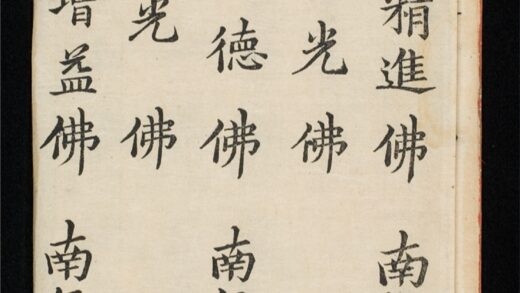 精進佛 南
光佛
德佛 南
光佛
增益佛 南